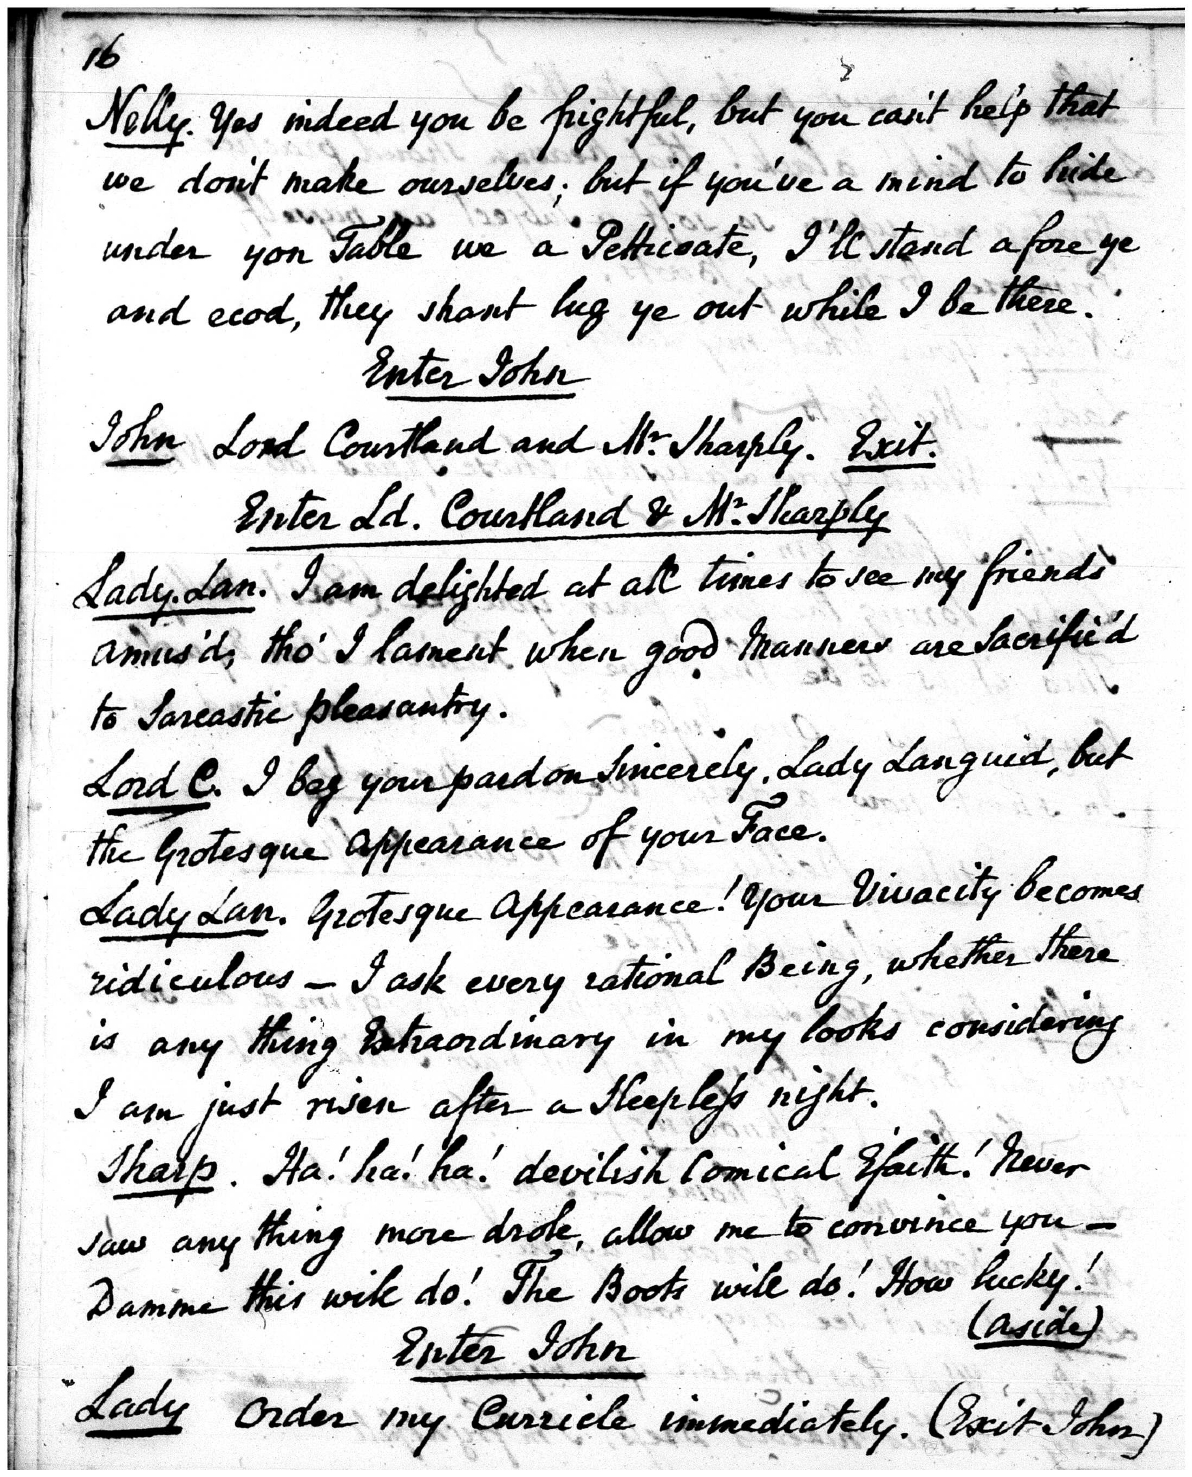 16
Nelly. Yes indeed you be frightful, but you can't help that
we don't make ourselves; but if you've a mind to hide
under yon Table we a Petticoate, I'll stand afore ye
and ecod, they shant lug ye out while I be there.
Enter John
John Lord Courtland and Mr. Sharply. Exit.
Enter Ld. Courtland & Mr. Sharply
Lady. Lan. I am delighted at all times to see my friends
amus'd, tho' I lament when good Manners are Sacrific'd
to Sarcastic pleasantry.
Lord C. I beg your pardon Sincerely, Lady Languid, but
the Grotesque Appearance of your Face.
Lady Lan. Grotesque Appearance! Your Vivacity becomes
ridiculous — I ask every rational Being, whether there
is any thing Extraordinary in my looks considering
I am just risen after a Sleepless night.
Sharp. Ha! ha! ha! devilish Comical E'faith! Never
saw any thing more drole, allow me to convince you —
Damme this will do! The Boots will do! How lucky!
(aside)
Enter John
Lady Order my Curricle immediately. (Exit John)